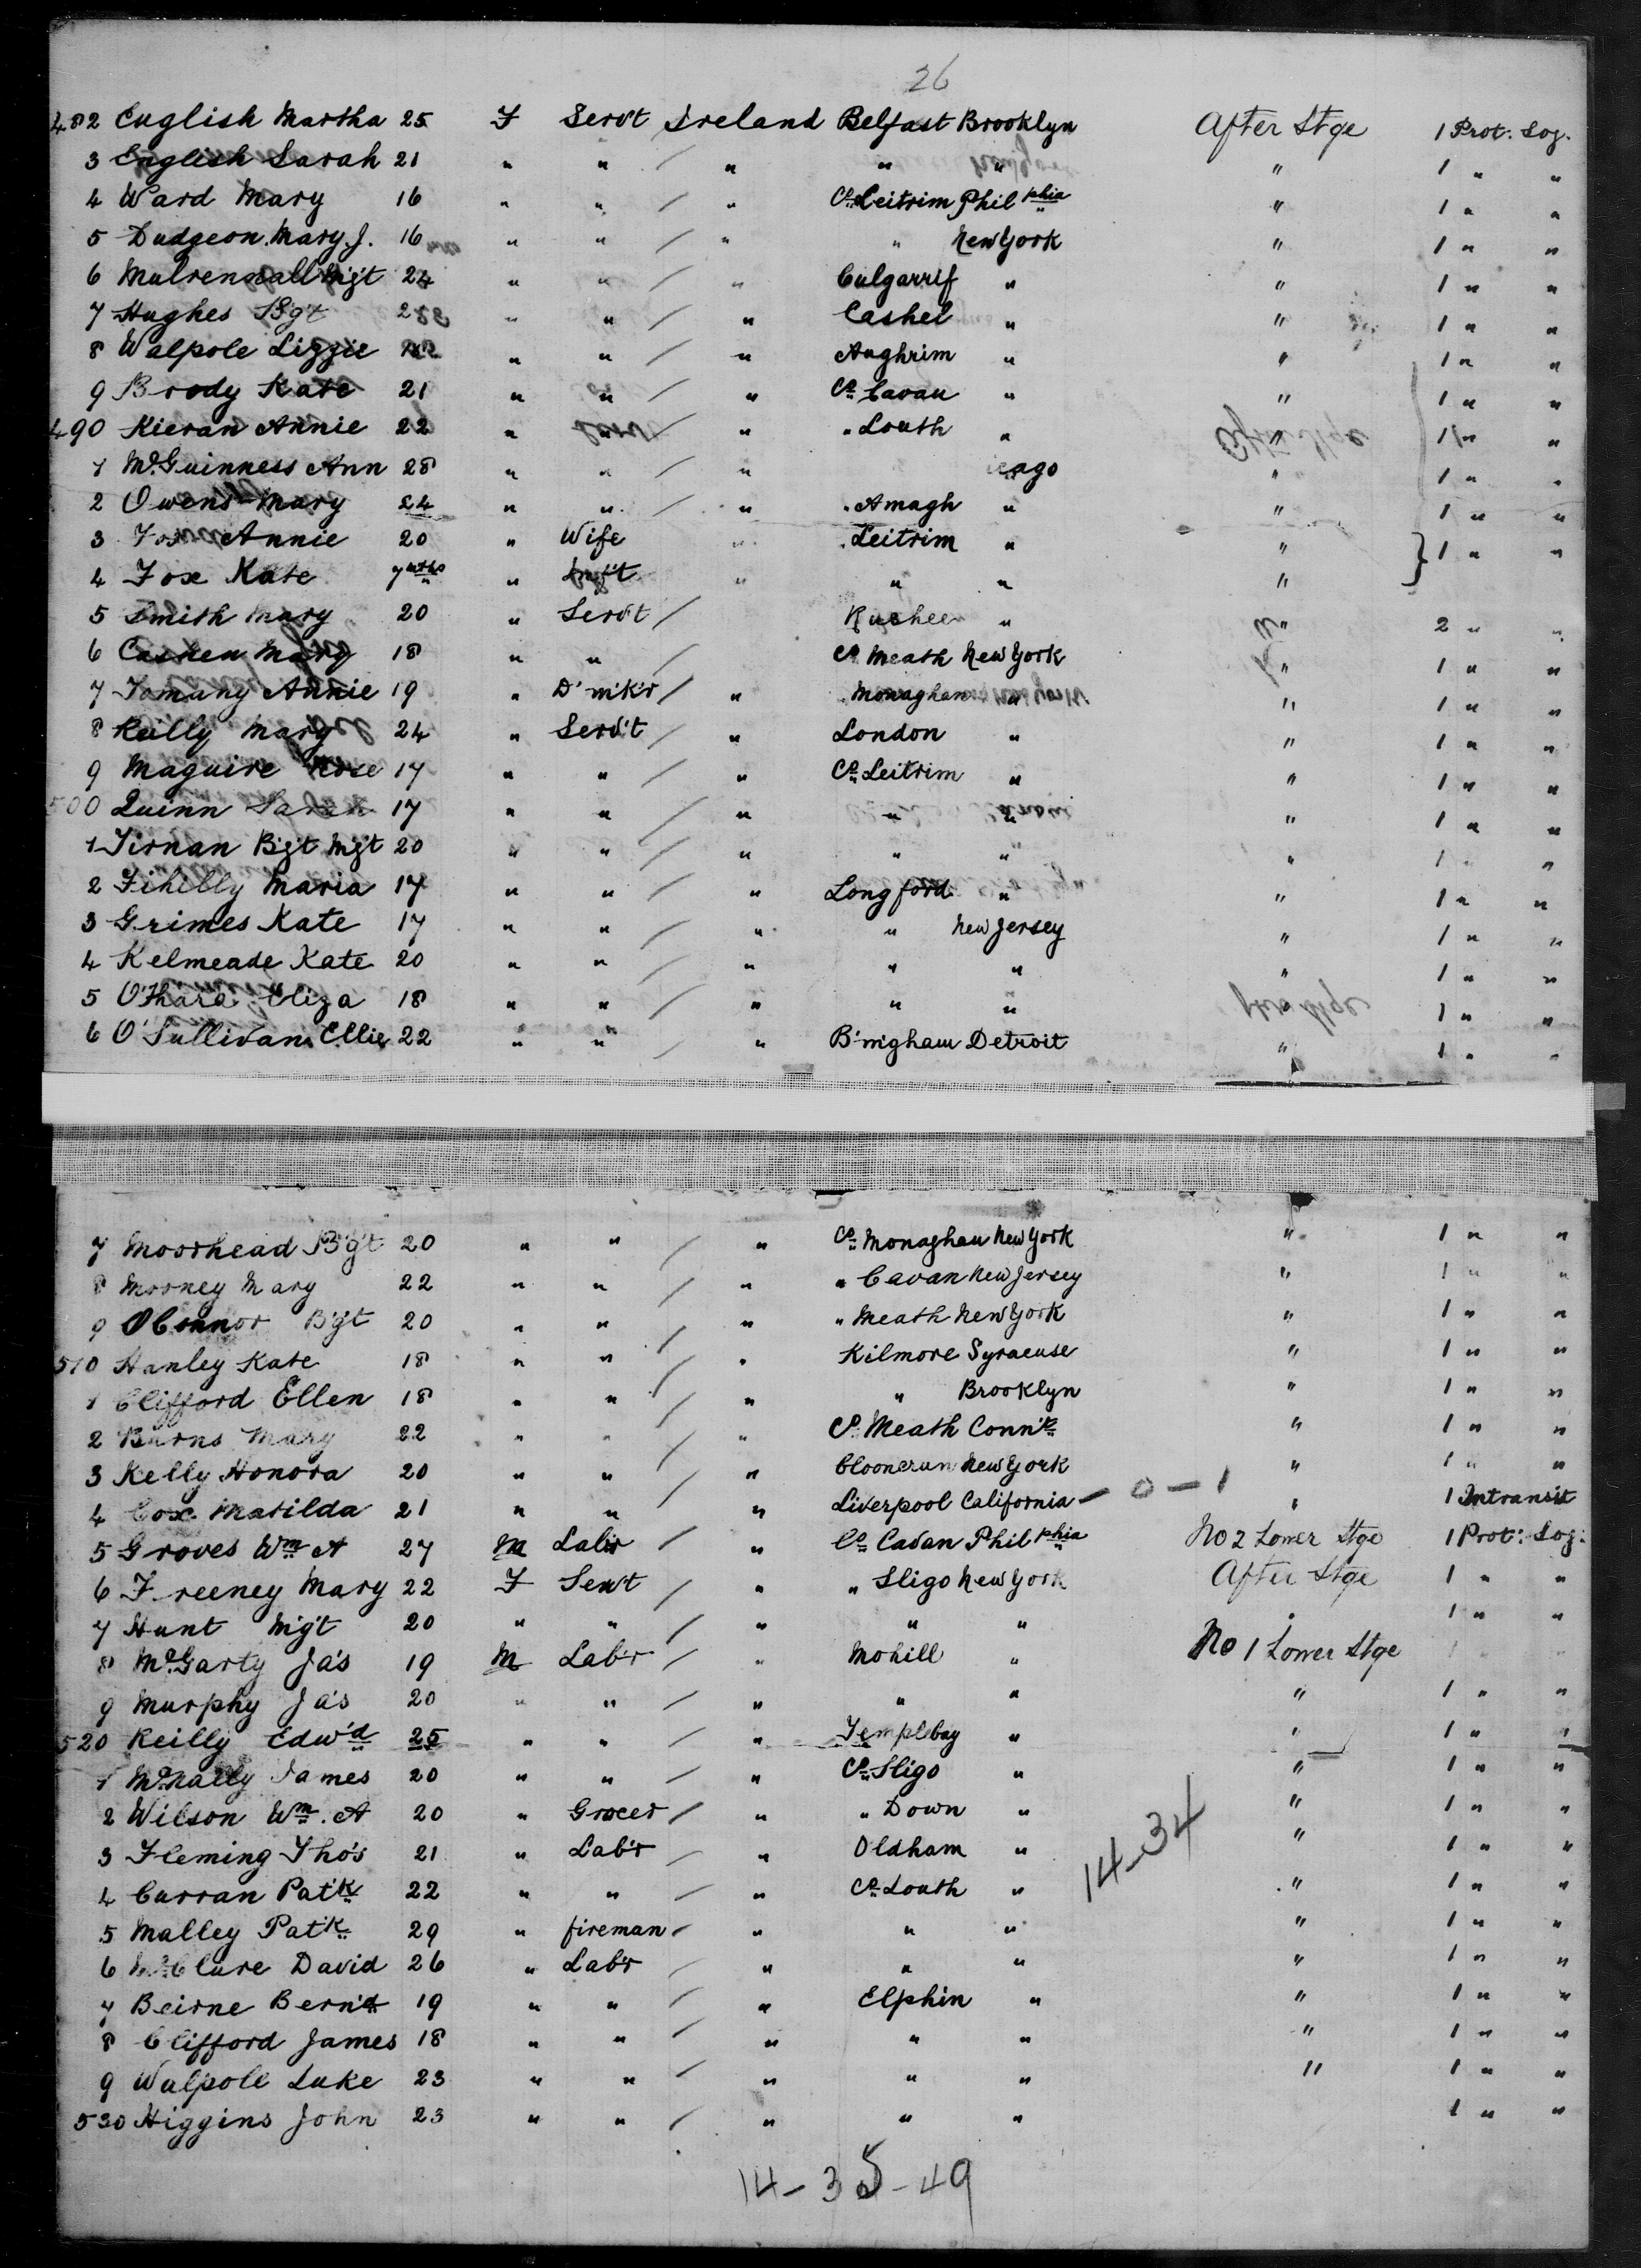 26
482 English Martha 25 F Serv't Ireland Belfast Brooklyn After Stge 1 Prot: Soj.
3 English Sarah 21 " " / " " " " 1 " "
4 Ward Mary 16 " " / " Co Leitrim Philphia " 1 " "
5 Dudgeon Mary J. 16 " " / " " New York " 1 " "
6 Mulrennall Mgt 24 " " / " Culgarrif " " 1 " "
7 Hughes Bgt " " / " Cashel " " 1 " "
8 Walpole Lizzie " " / " Aughrim " " 1 " "
9 Brody Kate 21 " " / " Co Cavan " " 1 " "
490 Kieran Annie 22 " " / " " Louth " " 1 " "
1 McGuinness Ann 28 " " / " " 1 " "
2 Owens Mary 24 " " / " " Amagh " " 1 " "
3 Fox Annie 20 " Wife " " Leitrim " " } 1 " "
4 Fox Kate 7 mths " Inf't " " " "
5 Smith Mary 20 " Serv't / " " 2 " "
6 Mary 18 " " / Co Meath New York " 1 " "
7 Tomany Annie 19 " D'mk'r / " " Monaghan " " 1 " "
8 Reilly Mary 24 " Serv't / " London " " 1 " "
9 Maguire Rose 17 " " / " Co Leitrim " " 1 " "
500 Quinn Sarah 17 " " / " " " " 1 " "
1 Tirnan Bgt Mgt 20 " " / " " " " 1 " "
2 Fihilly Maria 17 " " / " Longford " " 1 " "
3 Grimes Kate 17 " " / " " New Jersey " 1 " "
4 Kelmeade Kate 20 " " / " " " " 1 " "
5 O'Hara Eliza 18 " " / " " " 1 " "
6 O'Sullivan Ellie 22 " " / " B'mgham Detroit " 1 " "
7 Moorhead B'gt 20 " " / " Co Monaghan New York " 1 " "
8 Mooney Mary 22 " " / " " Cavan New Jersey " 1 " "
9 O'Connor B'gt 20 " " / " " Meath New York " 1 " "
510 Hanley Kate 18 " " / " Kilmore Syracuse " 1 " "
1 Clifford Ellen 18 " " / " " Brooklyn " 1 " "
2 Burns Mary 22 " " / " Co Meath Conn't " 1 " "
3 Kelly Honora 20 " " / " Clooncrun New York " 1 " "
4 Cox Matilda 21 " " / " Liverpool California - 0 - 1 " 1 Intransit
5 Groves Wm A 27 M Lab'r / " Co Cavan Philphia No 2 Lower Stge 1 Prot: Soj:
6 Freeney Mary 22 F Serv't / " " Sligo New York After Stge 1 " "
7 Hunt Mgt 20 " " / " " " " 1 " "
8 McGarty Ja's 19 M Lab'r / " Mohill " No 1 Lower Stge 1 " "
9 Murphy Ja's 20 " " / " " " " 1 " "
520 Reilly Edw'd 25 " " / " Templebay " " 1 " "
1 McNally James 20 " " / " Co Sligo " " 1 " "
2 Wilson Wm. A 20 " Grocer / " " Down " " 1 " "
3 Fleming Tho's 21 " Lab'r / " Oldham " " 1 " "
14-34
4 Curran Pat'k 22 " " / " Co Louth " " 1 " "
5 Malley Pat'k 29 " fireman / " " " " 1 " "
6 McClure David 26 " Lab'r / " " " " 1 " "
7 Beirne Bern'd 19 " " / " Elphin " " 1 " "
8 Clifford James 18 " " / " " " " 1 " "
9 Walpole Luke 23 " " / " " " " 1 " "
530 Higgins John 23 " " / " " " 1 " "
14-35-49